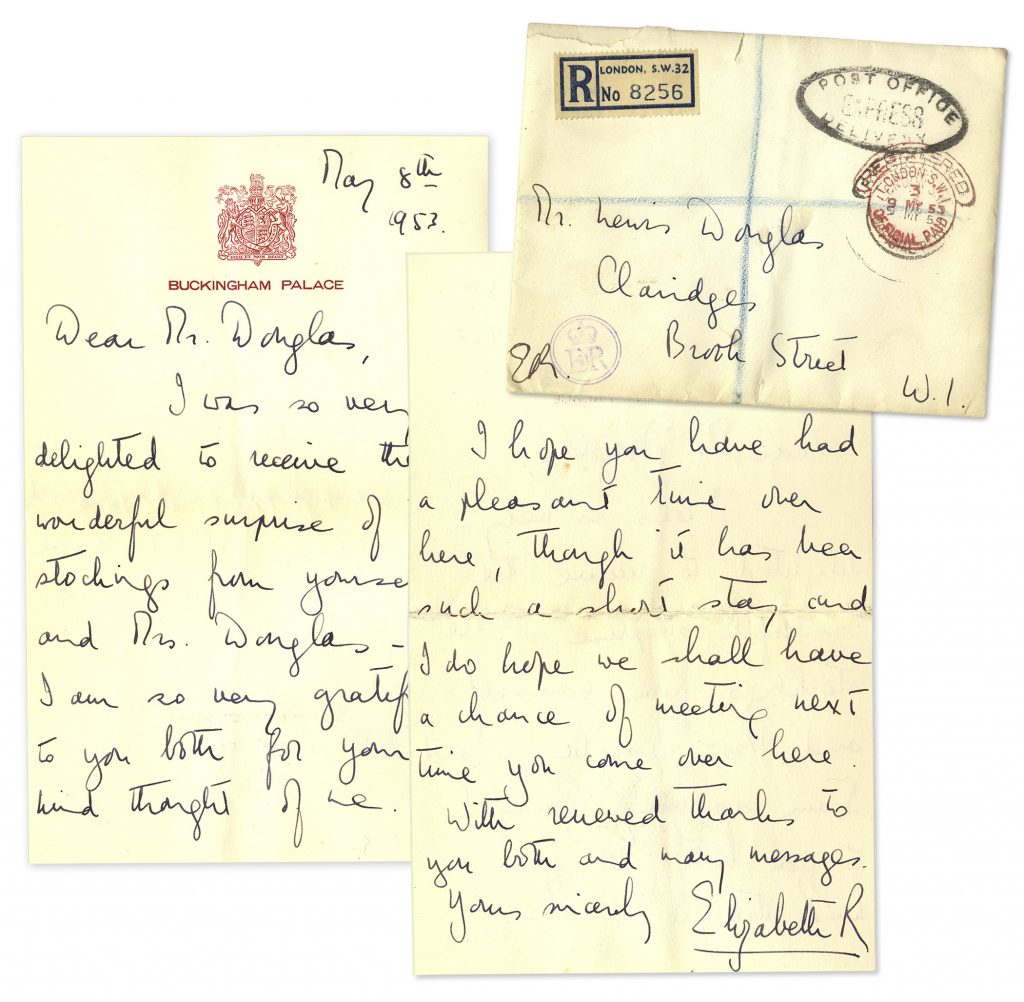 May 8th
1953.
DIEU ET MON DROIT
BUCKINGHAM PALACE
Dear Mr. Douglas,
I was so very
delighted to receive the
wonderful surprise of
stockings from yourse
and Mrs. Douglas –
I am so very gratef
to you both for your
kind thought of me.
I hope you have had
a pleasant time over
here, though it has been
such a short stay, and
I do hope we shall have
a chance of meeting next
time you come over here.
With renewed thanks to
you both and many messages.
Yours sincerely
Elizabeth R
R LONDON, S.W.32
No 8256
POST OFFICE
EXPRESS
DELIVERY
REGISTERED
LONDON S.W.1
3
9 MY 53
OFFICIAL PAID
Mr. Lewis Douglas
Claridges
Brook Street
W.1.
ER.
EIIR